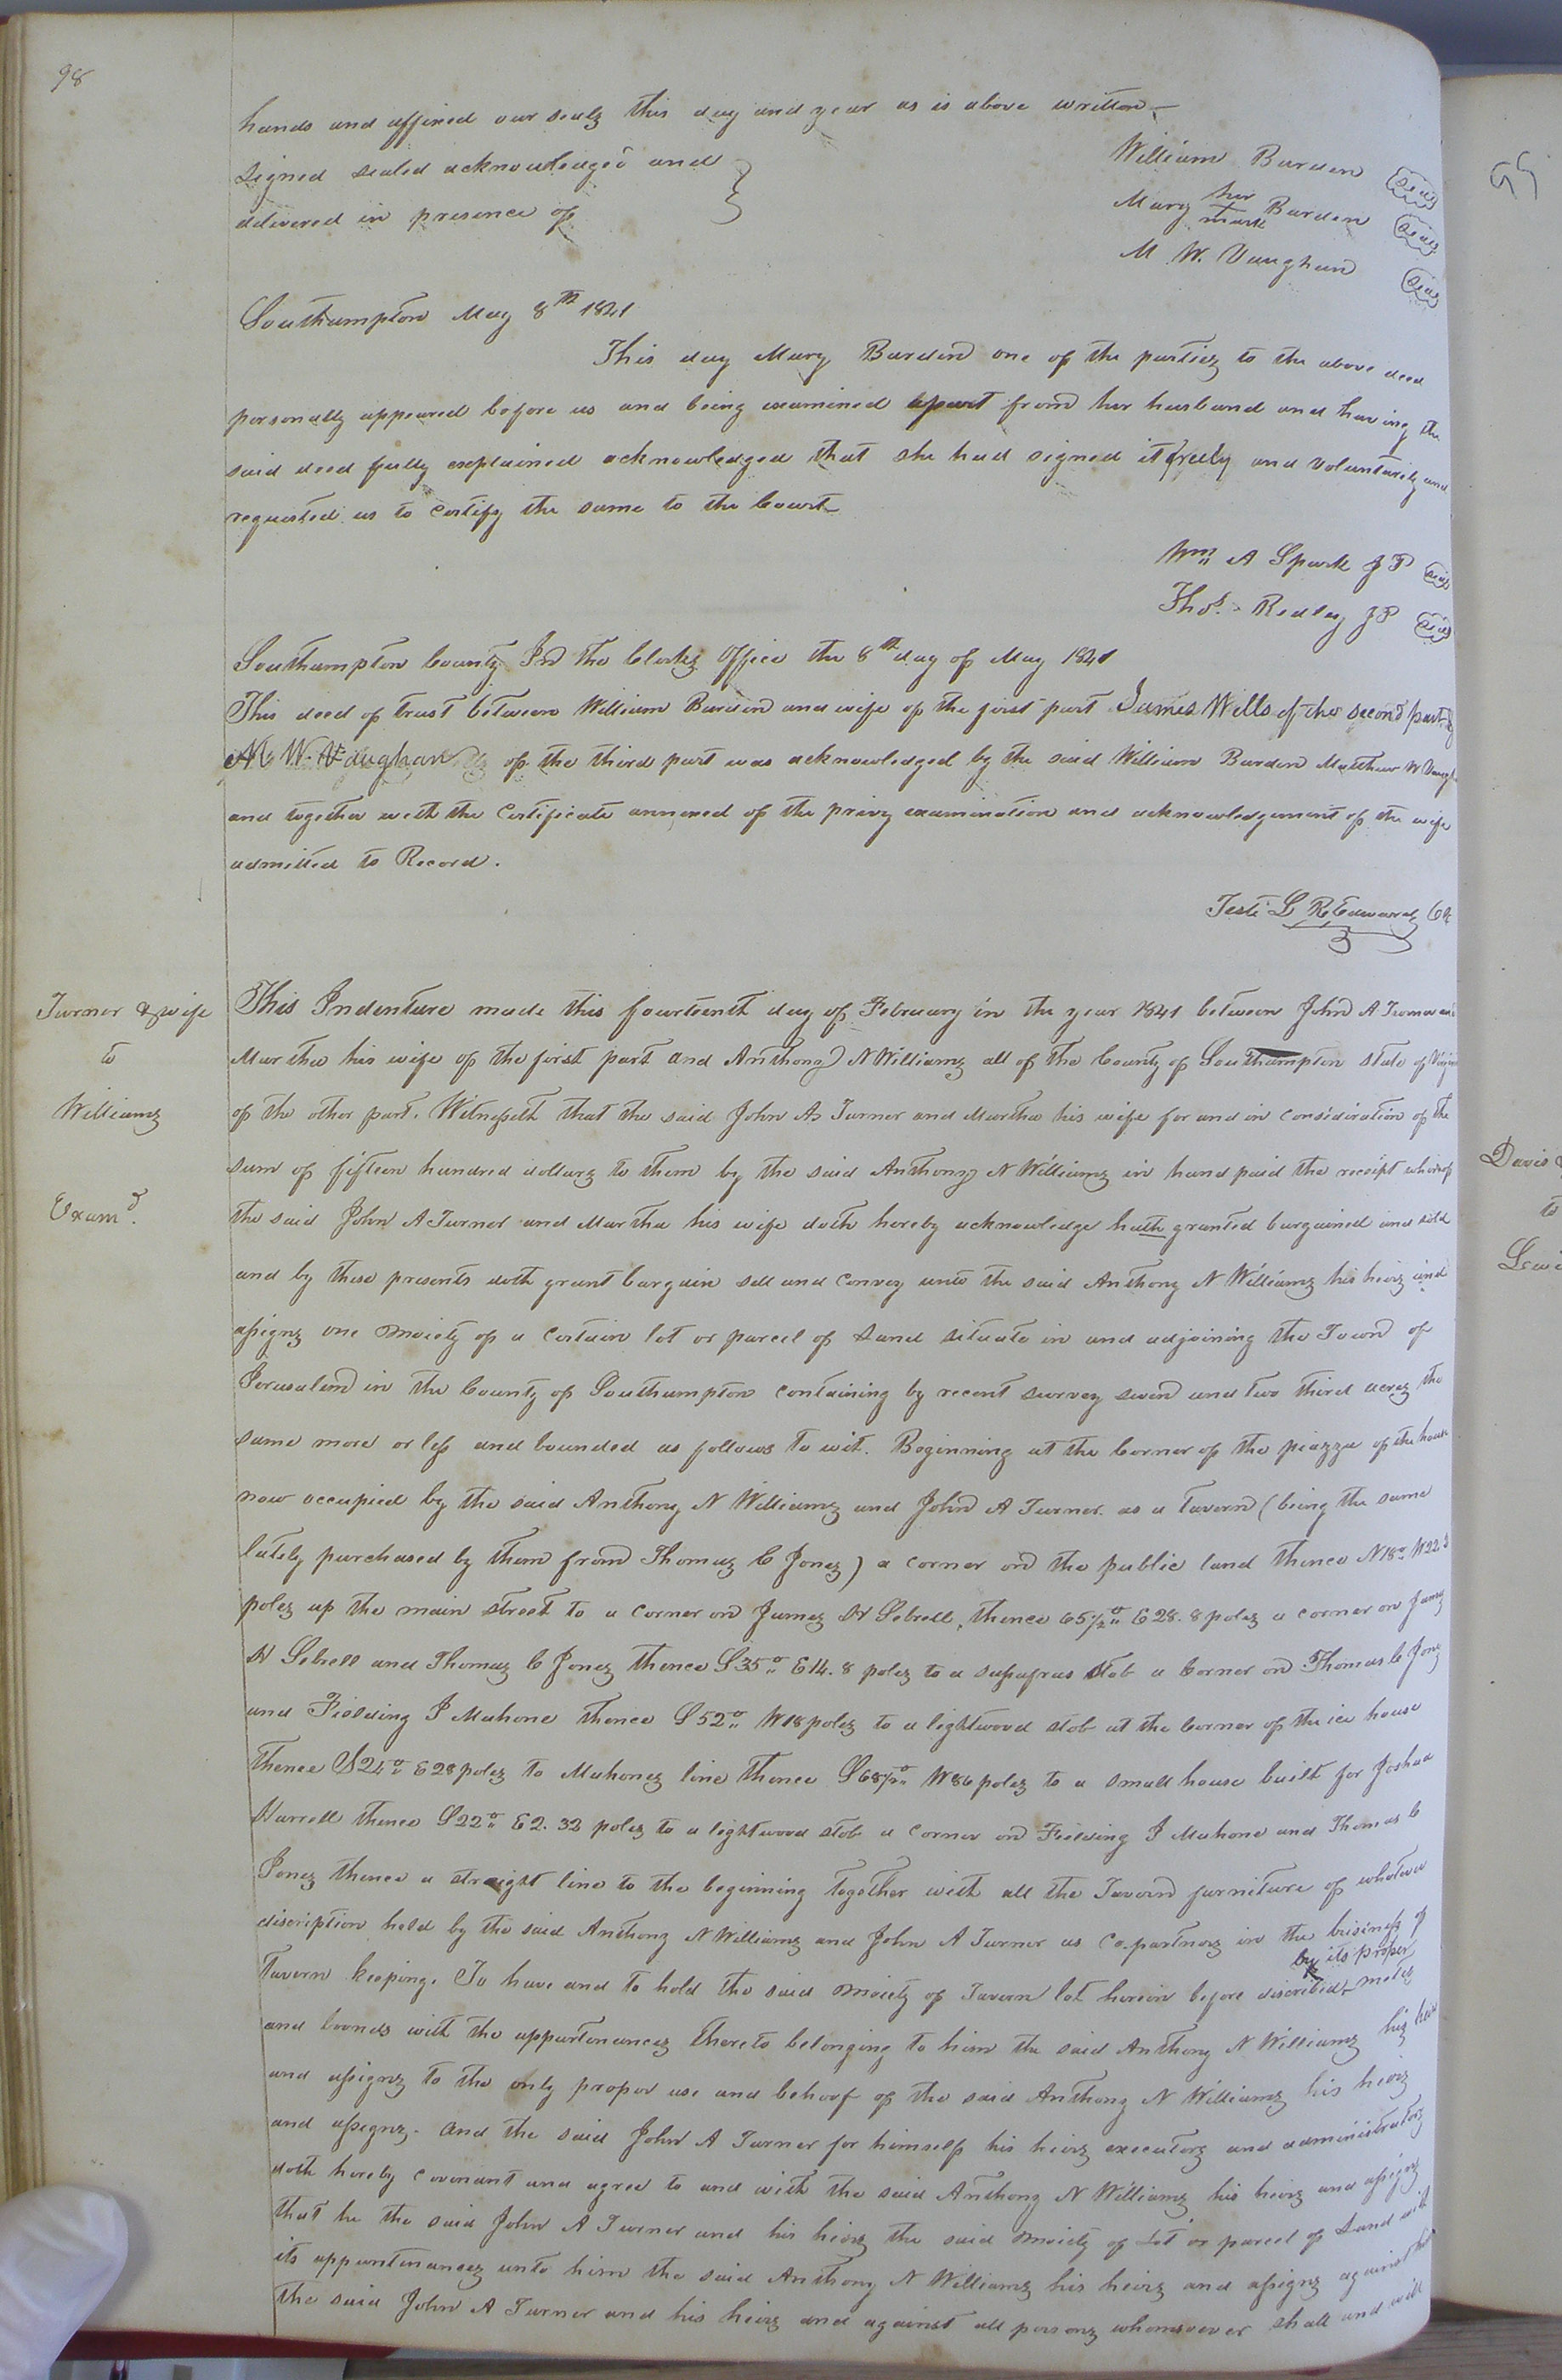 98
hands and affixed our seals this day and year as is above written
Signed sealed acknowledged and
delivered in presence of
William Barden seal
Mary her mark Barden seal
M W. Vaughan seal
Southampton May 8th 1841
This day Mary Barden one of the parties to the above deed
personally appeared before us and being examined apart from her husband and having the
said deed fully explained acknowledged that she had signed it freely and voluntarily and
requested us to certify the same to the Court
Wm A Spark JP seal
Thos. Ridley JP seal
Southampton County In the Clerks Office the 8th day of May 1841
This deed of trust between William Barden and wife of the first part James Wells of the second part &
M W. Vaughan of the third part was acknowledged by the said William Barden Matthew W Vaugh
and together with the Certificate annexed of the privy examination and acknowledgement of the wife
admitted to Record.
Teste L R Edwards Ck
Turner & wife
to
Williams
Examd.
This Indenture made this fourteenth day of February in the year 1841 between John A Turner and
Martha his wife of the first part and Anthony N Williams all of the County of Southampton State of Virginia
of the other part. Witnesseth that the said John A Turner and Martha his wife for and in consideration of the
sum of fifteen hundred dollars to them by the said Anthony N Williams in hand paid the receipt whereof
the said John A Turner and Martha his wife doth hereby acknowledge hath granted bargained and sold
and by these presents doth grant bargain sell and convey unto the said Anthony N Williams his heirs and
assigns one moiety of a certain lot or parcel of Land situate in and adjoining the Town of
Jerusalem in the County of Southampton containing by recent survey seven and two third acres the
same more or less and bounded as follows to wit. Beginning at the Corner of the piazza of the house
now occupied by the said Anthony N Williams and John A Turner as a Tavern (being the same
lately purchased by them from Thomas C Jones) a corner on the public land thence N18° W22.3
poles up the main street to a corner on James H Sebrell, thence 65½° E28.8 poles a corner on James
H Sebrell and Thomas C Jones thence S35° E14.8 poles to a sassafras stob a Corner on Thomas C Jones
and Fielding J Mahone thence S52° W18 poles to a lightwood stob at the Corner of the ice house
thence S24° E28 poles to Mahones line thence S68½° W86 poles to a small house built for Joshua
Harrell thence S22° E2.32 poles to a lightwood stob a corner on Fielding J Mahone and Thomas C
Jones thence a straight line to the beginning together with all the Tavern furniture of whatever
discription held by the said Anthony N Williams and John A Turner as Co.partners in the business of
Tavern keeping. To have and to hold the said moiety of Tavern lot herein before discribed by its proper metes
and bounds with the appurtenances thereto belonging to him the said Anthony N Williams his heirs
and assigns to the only proper use and behoof of the said Anthony N Williams his heirs
and assigns. And the said John A Turner for himself his heirs executors and administrators
doth hereby covenant and agree to and with the said Anthony N Williams his heirs and assigns
that he the said John A Turner and his heirs the said moiety of Lot or parcel of Land with
its appurtenances unto him the said Anthony N Williams his heirs and assigns against him
the said John A Turner and his heirs and against all persons whomsoever shall and will
Davis &
to